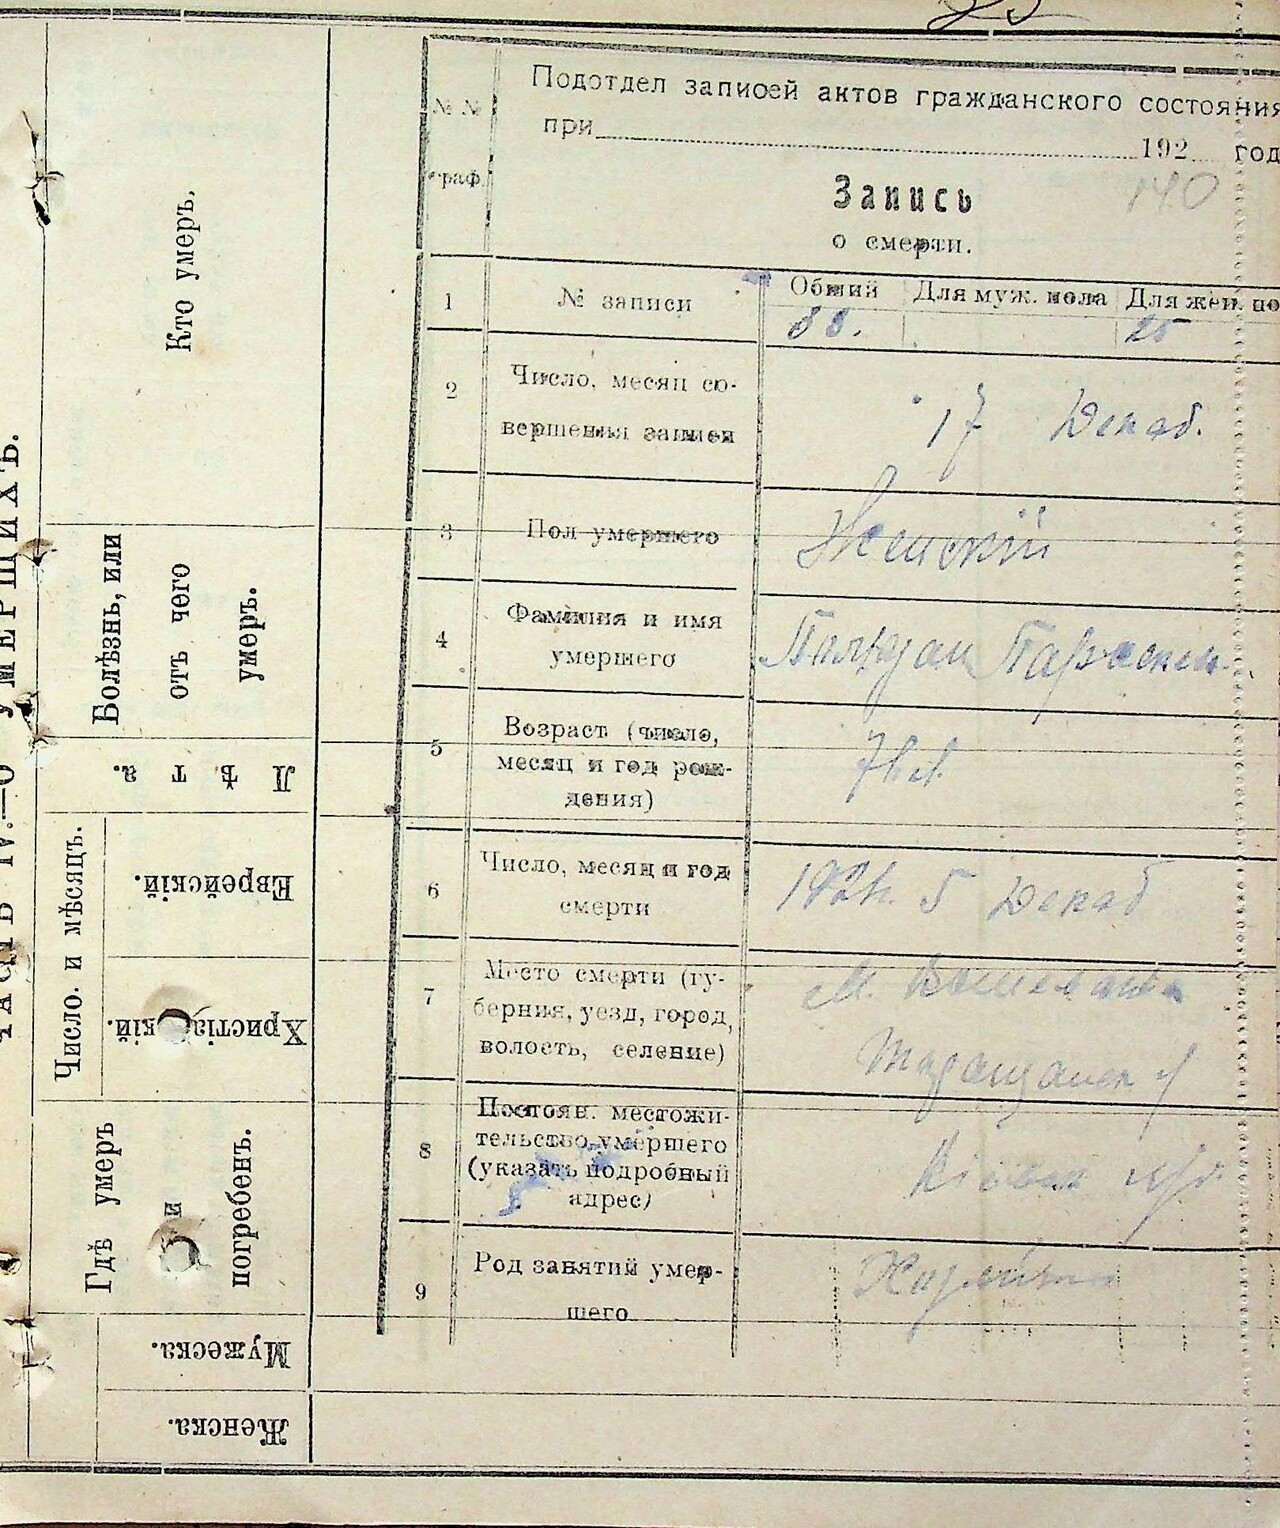 Подотдел записей актов гражданского состояния
при 192 год
140
Запись
о смерти.
№№
граф.
1 № записи Общий Для муж. пола Для жен. по
88. 25
2 Число, месяц со-
вершения записи
17 Декаб.
3 Пол умершего Женскій
4 Фамилия и имя
умершего
Параскев
5 Возраст (число,
месяц и год рож-
дения)
6 Число, месяц и год
смерти
5 Декаб
7 Место смерти (гу-
берния, уезд, город,
волость, селение)
М.
Таращанск у
8 Постоян. местожи-
тельство умершего
(указать подробный
адрес)
Кіевск
9 Род занятий умер-
шего
ЧАСТЬ IV.—О УМЕРШИХЪ.
Кто умеръ.
Болѣзнь, или
отъ чего
умеръ.
Лѣта.
Число и мѣсяцъ.
Еврейскій.
Христіанскій.
Гдѣ умеръ
и
погребенъ.
Мужеска.
Женска.